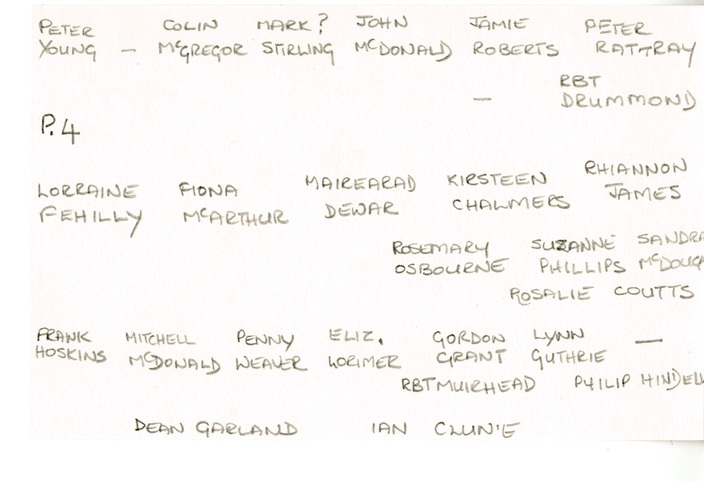 PETER COLIN MARK? JOHN JAMIE PETER
YOUNG — McGREGOR STIRLING McDONALD ROBERTS RATTRAY
RBT
— DRUMMOND
P.4
LORRAINE FIONA MAIREARAD KIRSTEEN RHIANNON
FEHILLY McARTHUR DEWAR CHALMERS JAMES
ROSEMARY SUZANNE SANDRA
OSBOURNE PHILLIPS McDOUG
ROSALIE COUTTS
FRANK MITCHELL PENNY ELIZ. GORDON LYNN —
HOSKINS McDONALD WEAVER LORIMER GRANT GUTHRIE
RBT MUIRHEAD PHILIP HINDELL
DEAN GARLAND IAN CLUNIE